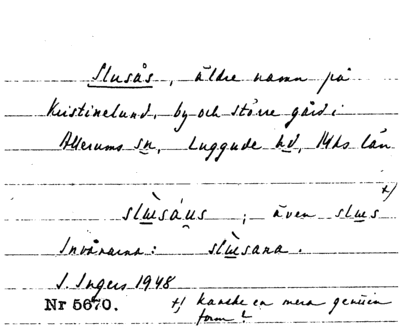 Slusås, äldre namn på
Kristinelund, by och större gård i
Allerums sn, Luggude hd, M-hs län
slu̇sáus; även slus +)
Invånarna: slusana.
I. Ingers 1948
Nr 5670. +) kanske en mera genuin
form?